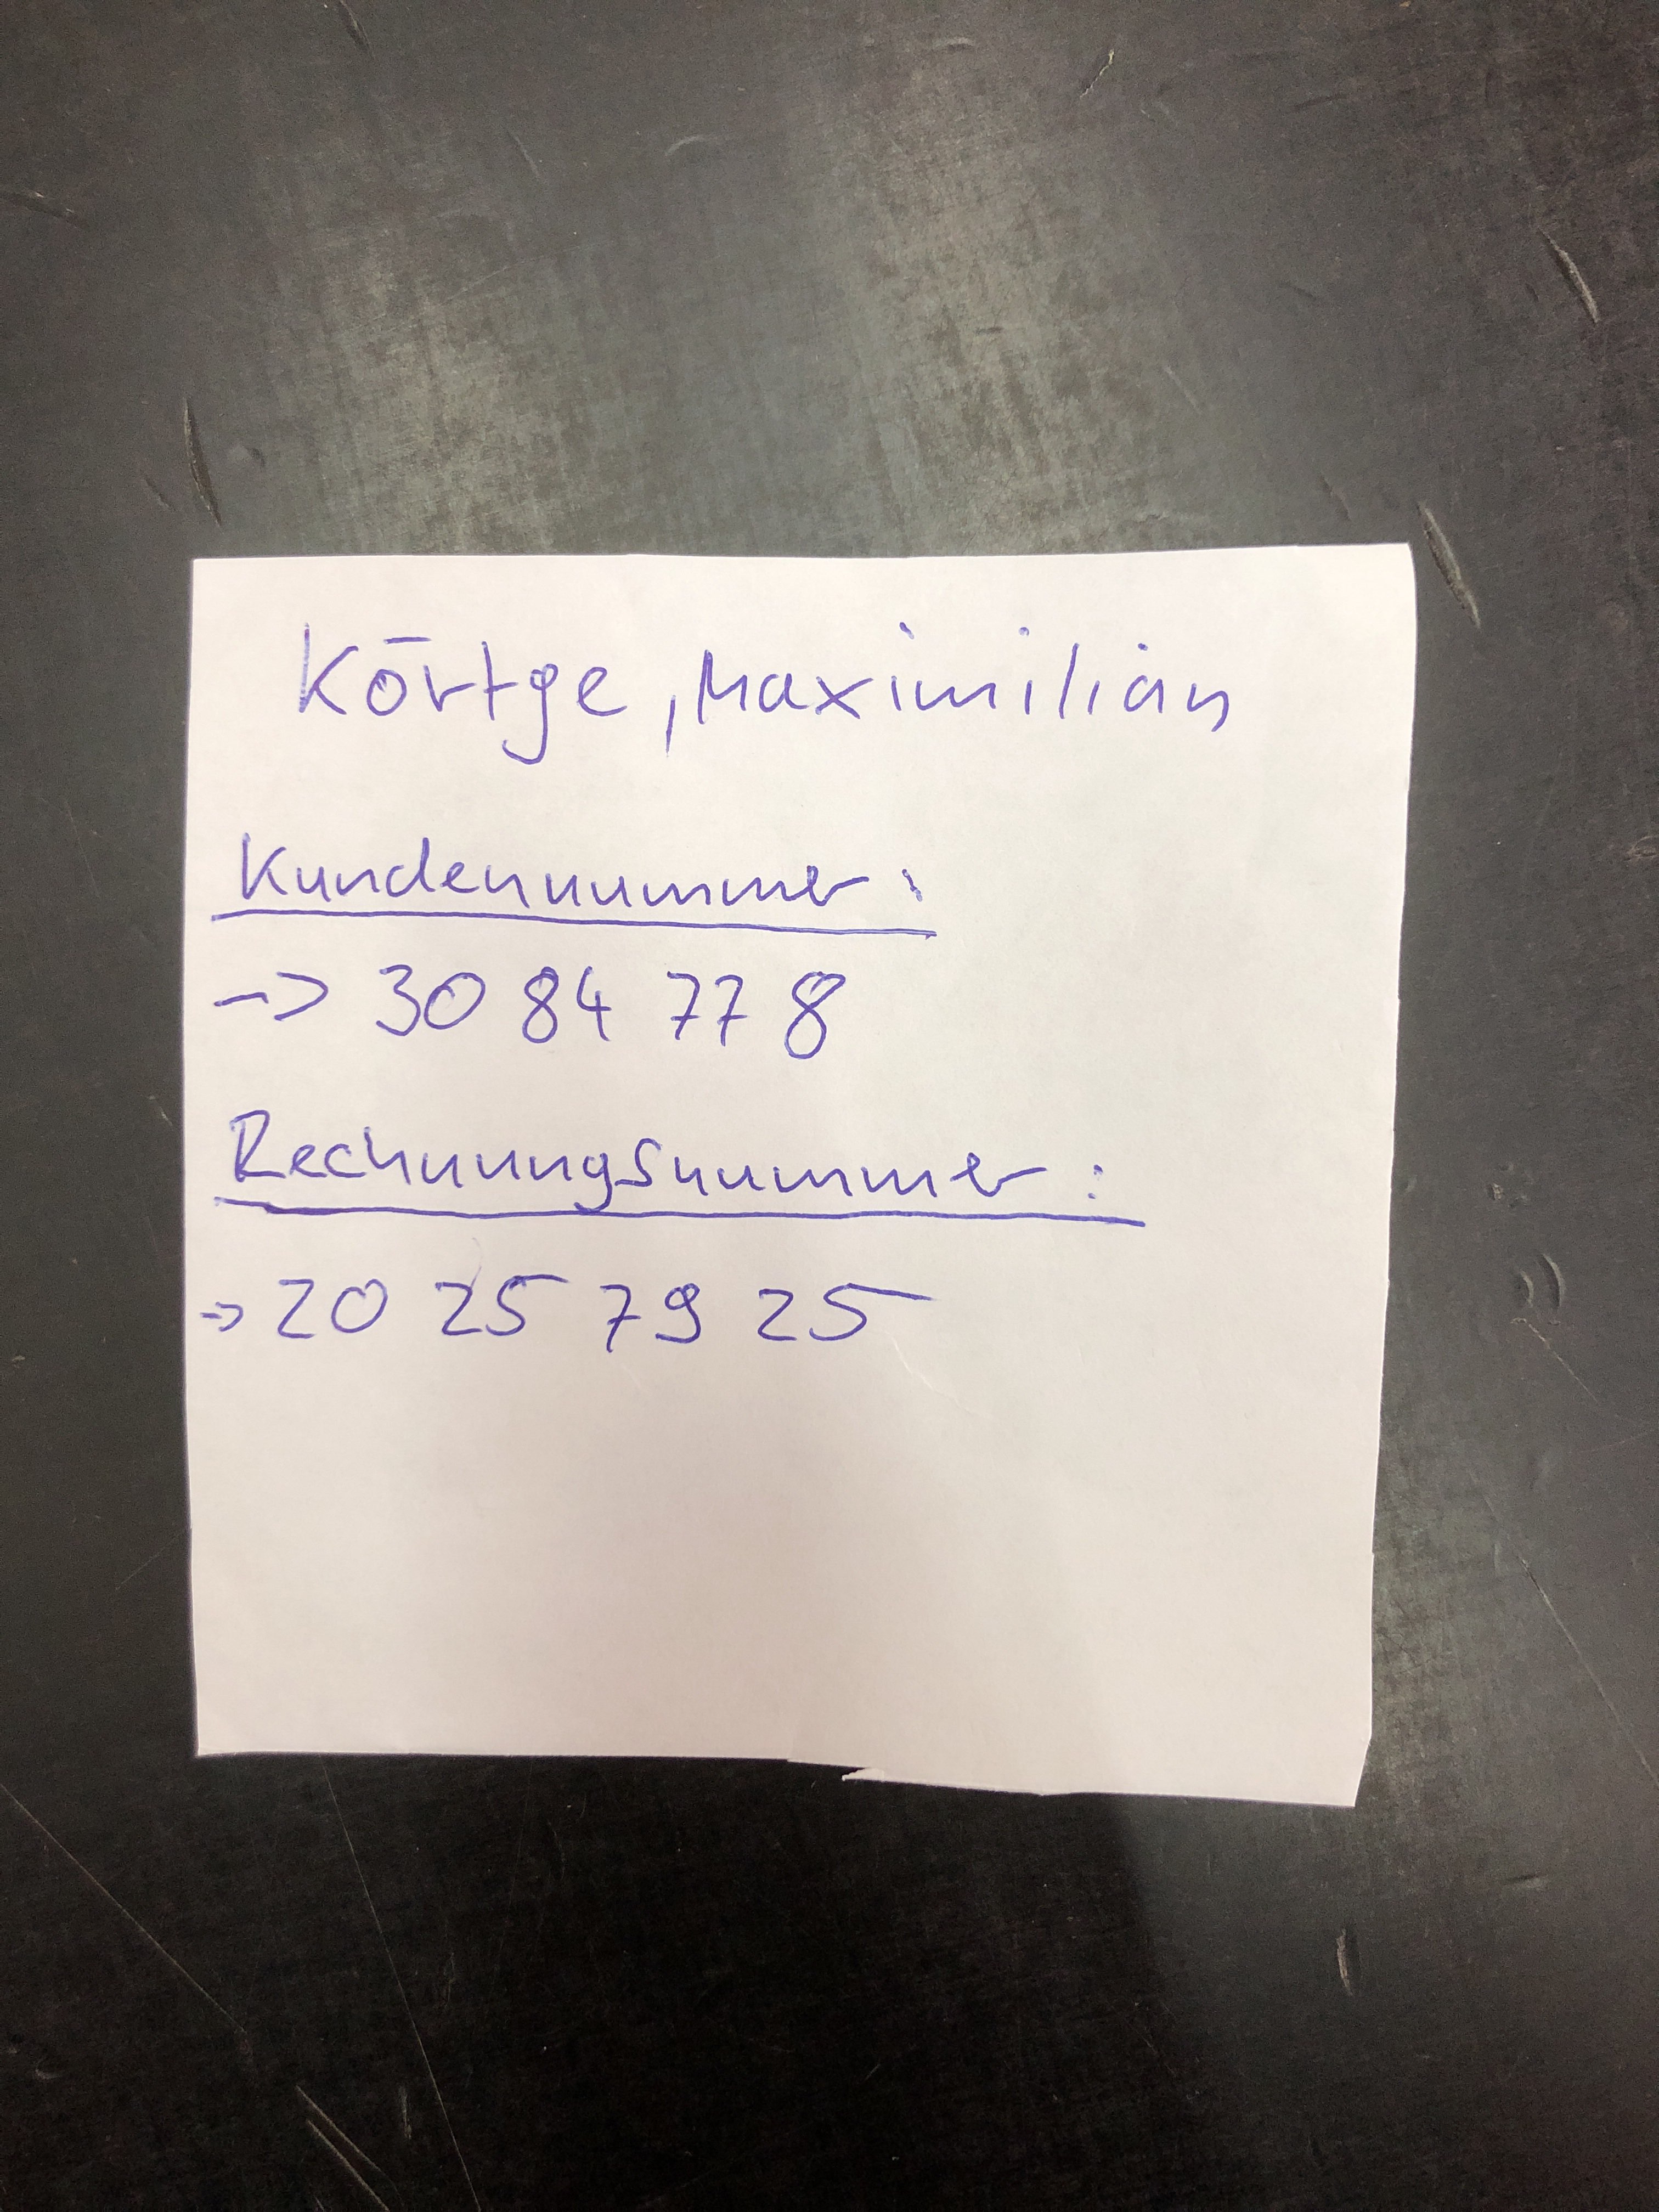 Körtge, Maximilian
Kundennummer:
-> 30 84 77 8
Rechnungsnummer:
-> 20 25 79 25